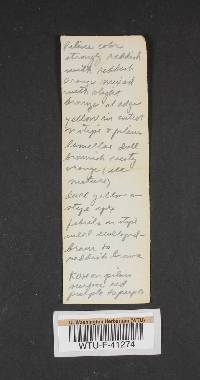 Pileus color
strongly reddish
with reddish
orange mixed
with slight
orange at edge
yellow in context
in stipe & pileus
Lamellae dull
brownish rusty
orange (all
mature)
dull yellow on
stipe apex
fibrils on stipe
brown to
reddish brown
KOH on pileus
surface red
purple to purple
U. Washington Herbarium (WTU)
WTU-F-41274